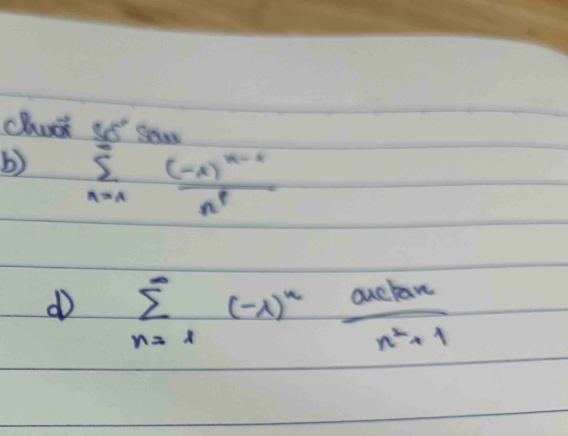 chuỗi số sau
b) ∑_{n=1}^{∞} (-1)^{n-1} / n^p
d) ∑_{n=1}^{∞} (-1)^n arctan / n^2+1